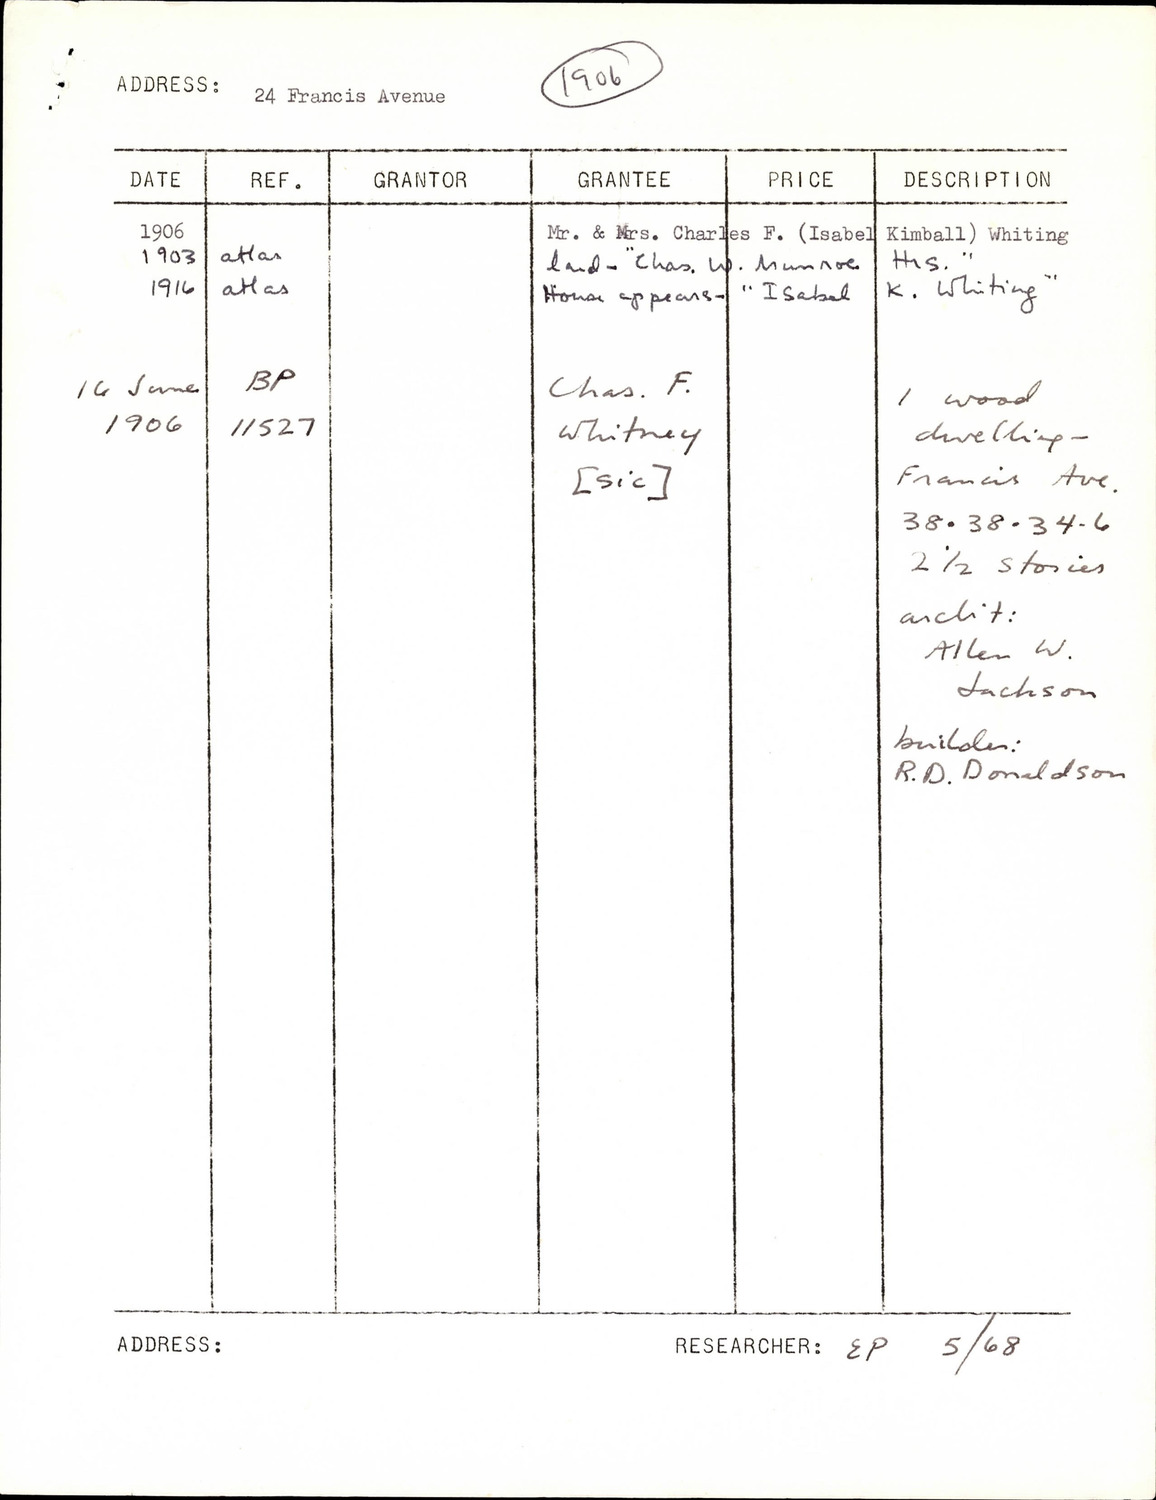 ADDRESS: 24 Francis Avenue
1906
DATE REF. GRANTOR GRANTEE PRICE DESCRIPTION
1906 Mr. & Mrs. Charles F. (Isabel Kimball) Whiting
1903 atlas land - "Chas. W. Munroe Hrs."
1916 atlas House appears - "Isabel K. Whiting"
16 June BP Chas. F. 1 wood
1906 11527 Whitney dwelling -
[sic] Francis Ave.
38·38·34-6
2 1/2 stories
archit:
Allen W.
Jackson
builder:
R.D. Donaldson
ADDRESS: RESEARCHER: EP 5/68